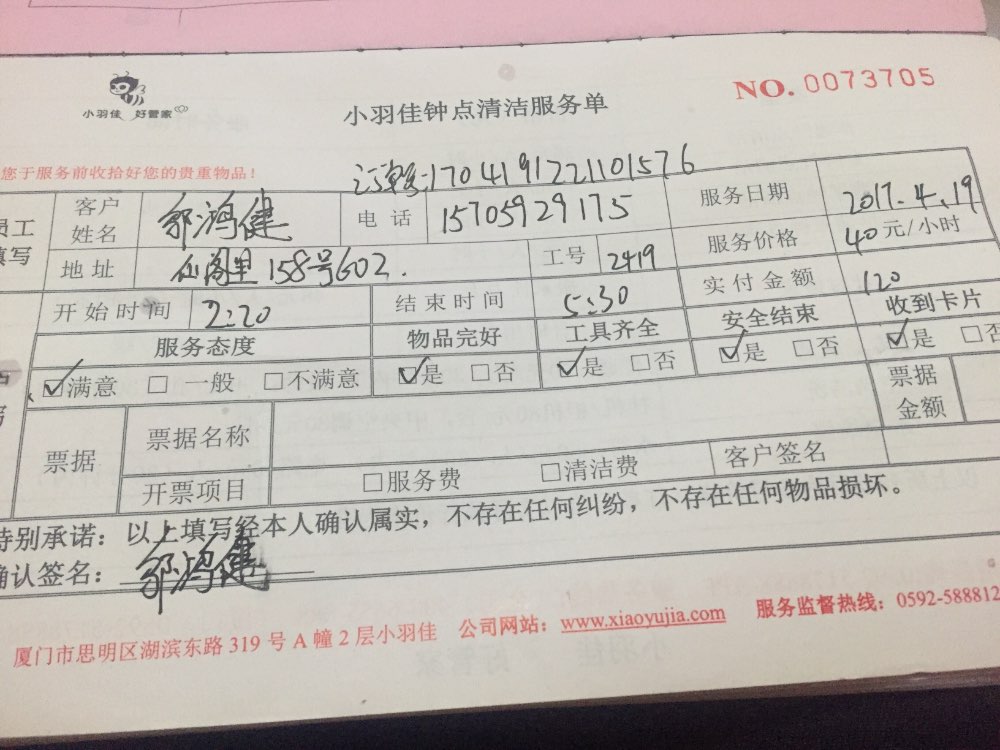 小羽佳 好管家
小羽佳钟点清洁服务单
NO. 0073705
您于服务前收拾好您的贵重物品！
订单号:1704191221101576
员工填写 客户姓名 郭鸿健 电话 15705929175 服务日期 2017.4.19
地址 仙阁里158号602. 工号 2419 服务价格 40元/小时
开始时间 2:20 结束时间 5:30 实付金额 120
服务态度 物品完好 工具齐全 安全结束 收到卡片
☑满意 □一般 □不满意 ☑是 □否 ☑是 □否 ☑是 □否 ☑是 □否
票据 票据名称 票据金额
开票项目 □服务费 □清洁费 客户签名
特别承诺：以上填写经本人确认属实，不存在任何纠纷，不存在任何物品损坏。
确认签名：郭鸿健
厦门市思明区湖滨东路319号A幢2层小羽佳 公司网站：www.xiaoyujia.com 服务监督热线：0592-588812